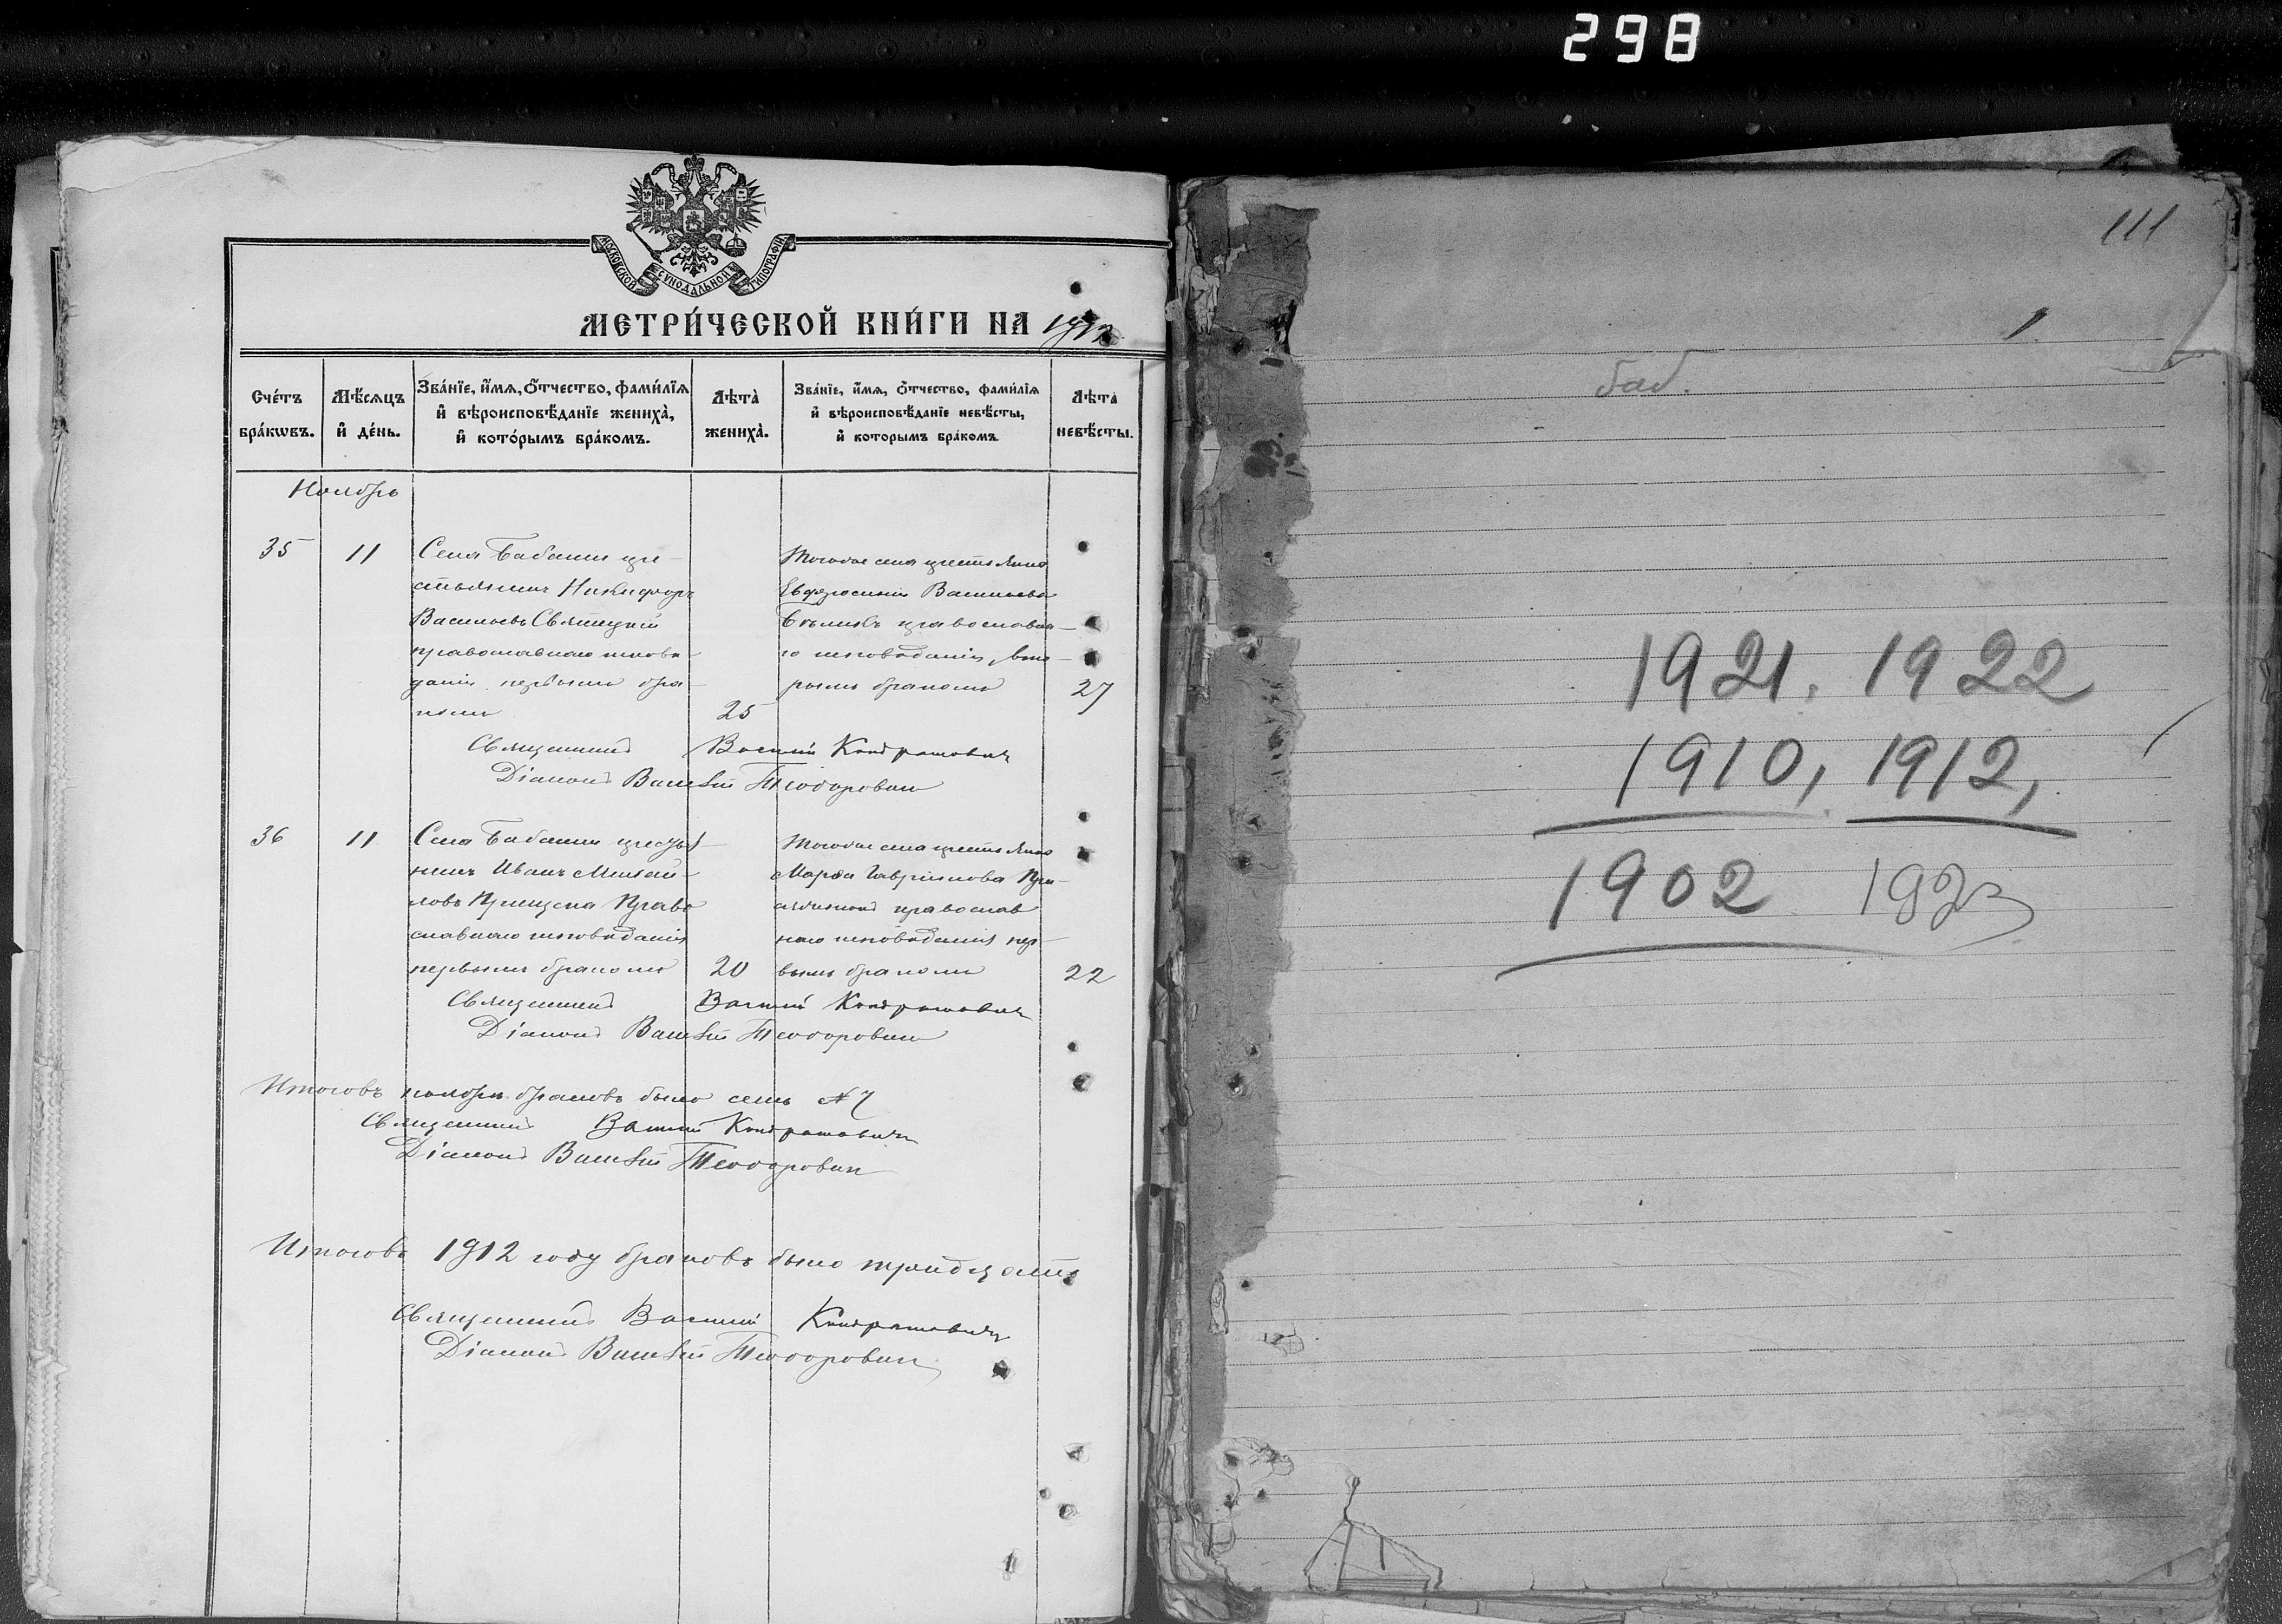 298
МОСКОВСКОЙ СѴНОДАЛЬНОЙ ТИПОГРАФІИ
МЕТРИ́ЧЕСКОЙ КНИ́ГИ НА 1912
Сче́тъ бра́кѡвъ.
Мѣ́сѧцъ и҆ де́нь.
Зва́нїе, и҆́мѧ, ѻ҆́тчество, фами́лїѧ
и҆ вѣроисповѣ́данїе жениха̀,
и҆ кото́рымъ бра́комъ.
Лѣта̀ жениха̀.
Зва́нїе, и҆́мѧ, ѻ҆́тчество, фами́лїѧ
и҆ вѣроисповѣ́данїе невѣ́сты,
и҆ которымъ бра́комъ.
Лѣта̀ невѣ́сты.
Ноябрь
35
11
Села Бабина кре-
стьянинъ Никифоръ
Васильевъ Святецкій
православнаго исповѣ-
данія первымъ бра-
комъ
25
Того же села крестьянка
Евфросинія Васильева
православна-
го исповѣданія, вто-
рымъ бракомъ
27
Священникъ Василій Кондратовичъ
Діаконъ Василій Теодорович
36
11
Села Бабина крестья-
нинъ Иванъ Михай-
ловъ Прищепа Право
славнаго исповѣданія
первымъ бракомъ
20
Того же села крестьянка
Марфа Гавриилова
православ
наго исповѣданія пер-
вымъ бракомъ
22
Священникъ Василій Кондратовичъ
Діаконъ Василій Теодорович
Итого въ ноябрѣ браковъ было семь № 7
Священникъ Василій Кондратовичъ
Діаконъ Василій Теодорович
Итого въ 1912 году браковъ было тридцать
Священникъ Василій Кондратовичъ
Діаконъ Василій Теодорович
111
1.
баб.
1921. 1922
1910, 1912,
1902 1923